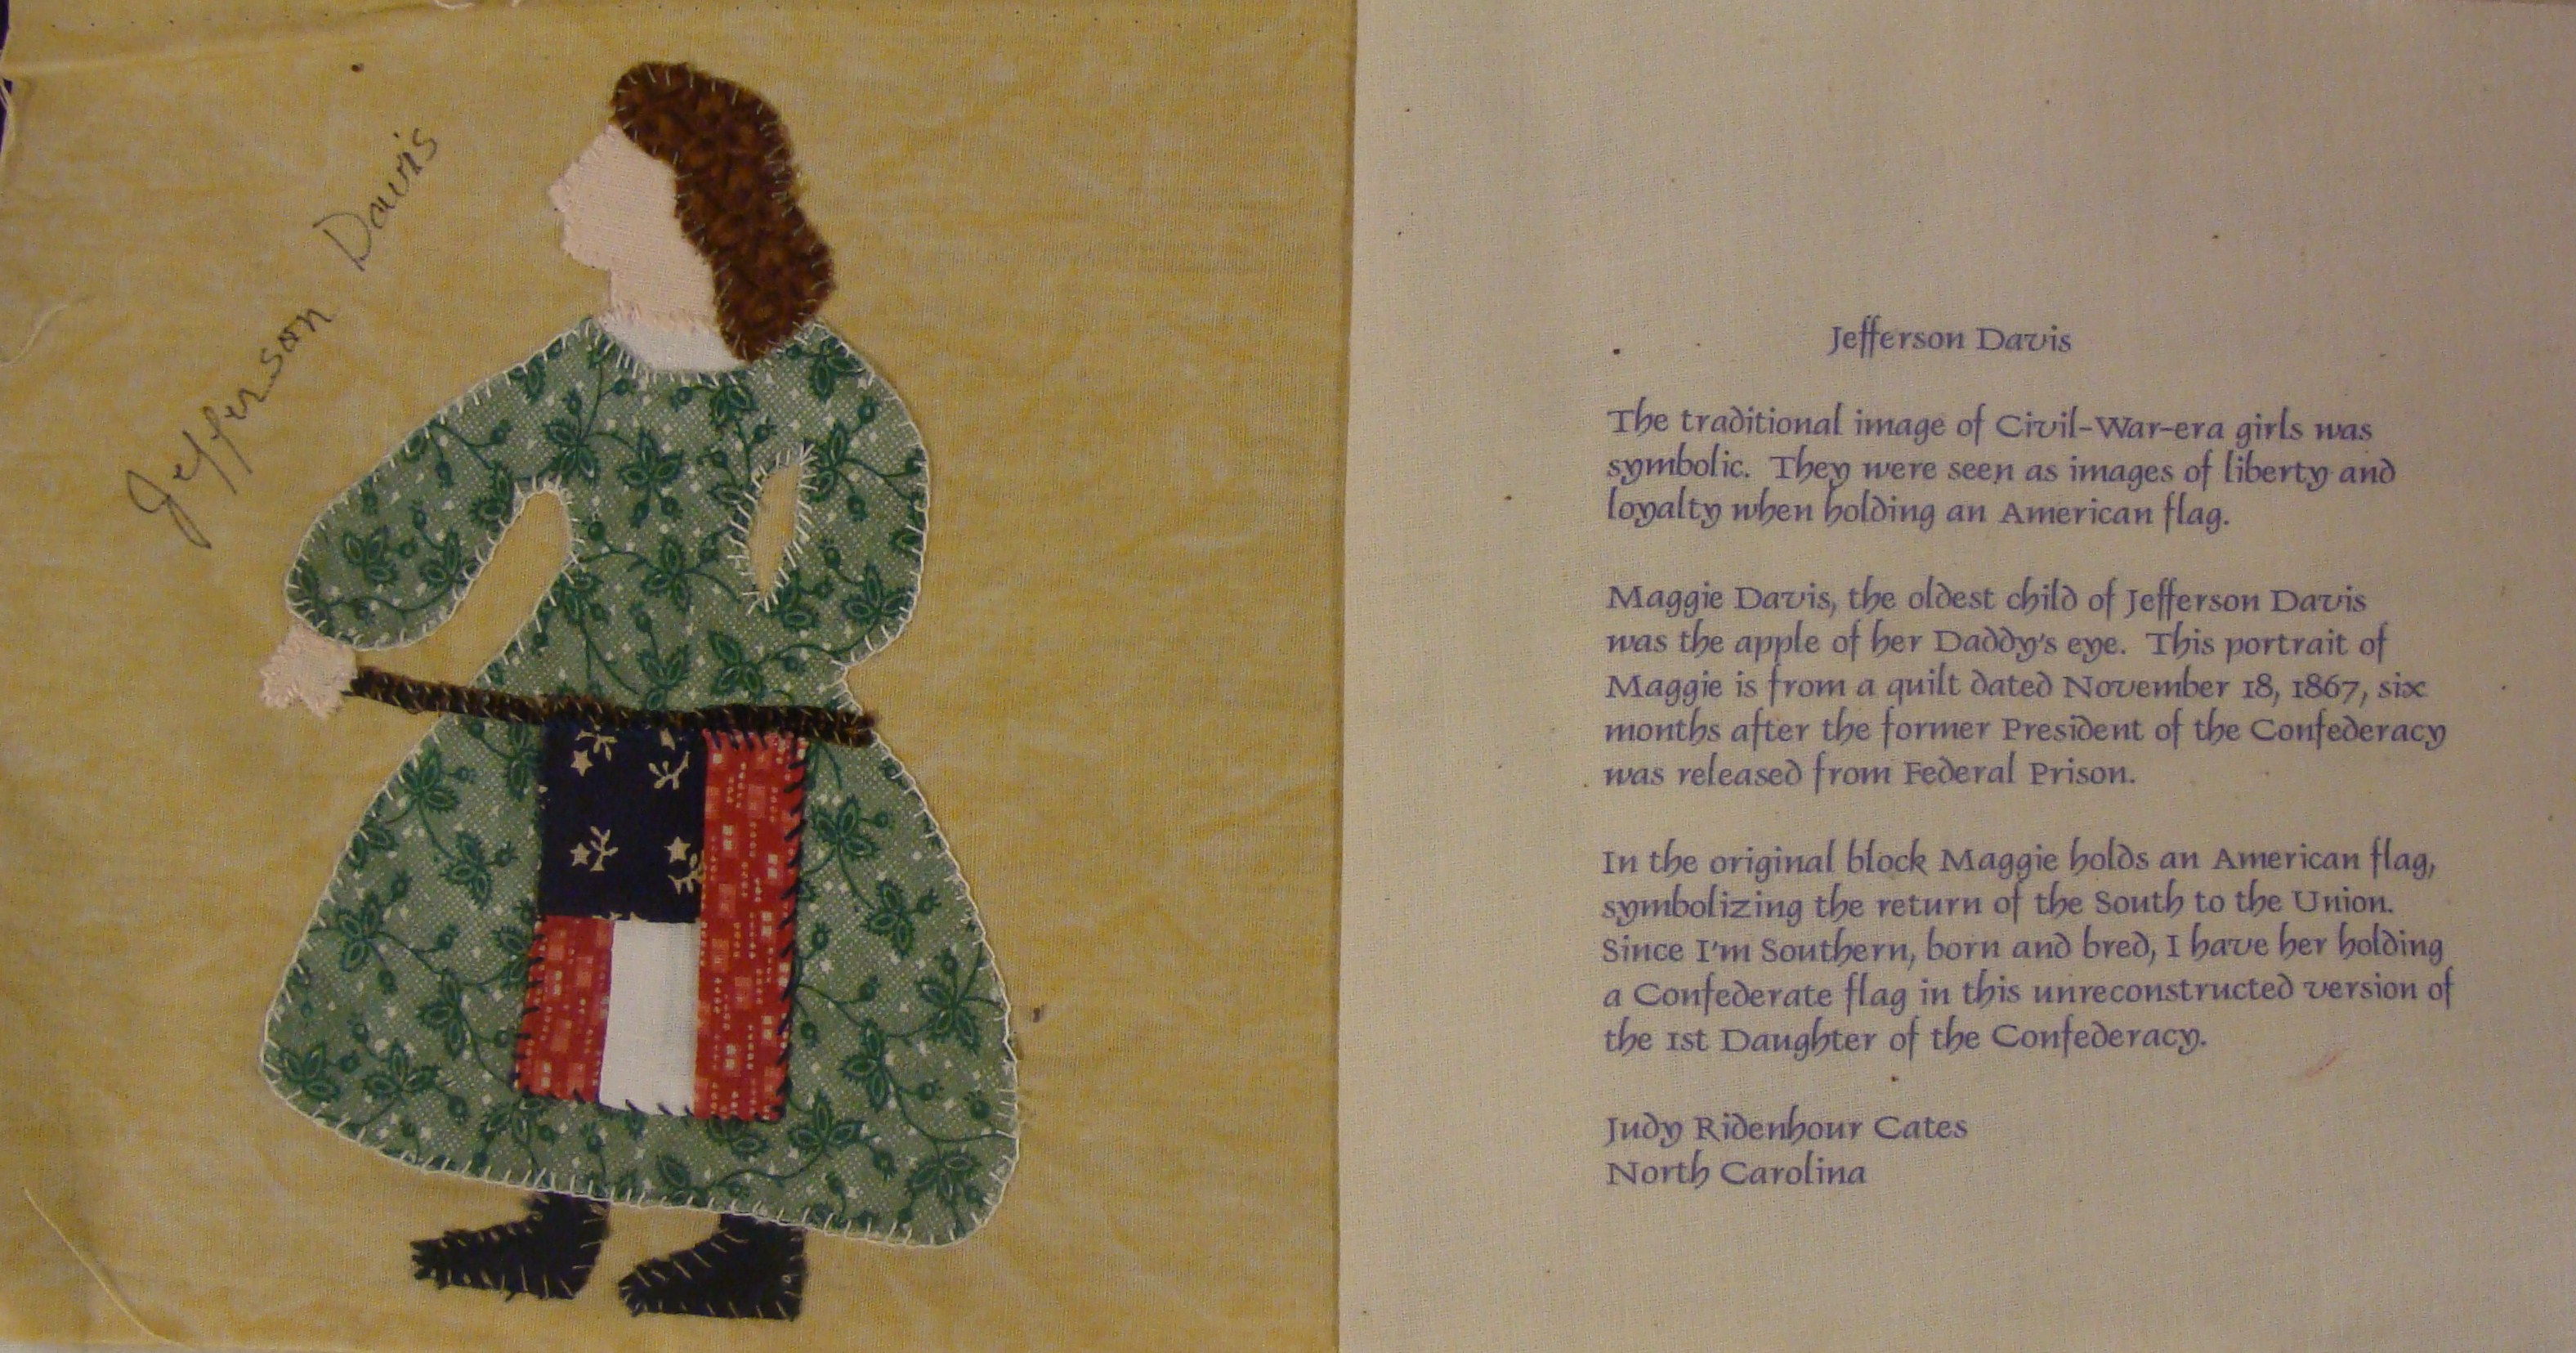 Jefferson Davis
Jefferson Davis
The traditional image of Civil-War-era girls was
symbolic. They were seen as images of liberty and
loyalty when holding an American flag.
Maggie Davis, the oldest child of Jefferson Davis
was the apple of her Daddy's eye. This portrait of
Maggie is from a quilt dated November 18, 1867, six
months after the former President of the Confederacy
was released from Federal Prison.
In the original block Maggie holds an American flag,
symbolizing the return of the South to the Union.
Since I'm Southern, born and bred, I have her holding
a Confederate flag in this unreconstructed version of
the 1st Daughter of the Confederacy.
Judy Ridenhour Cates
North Carolina